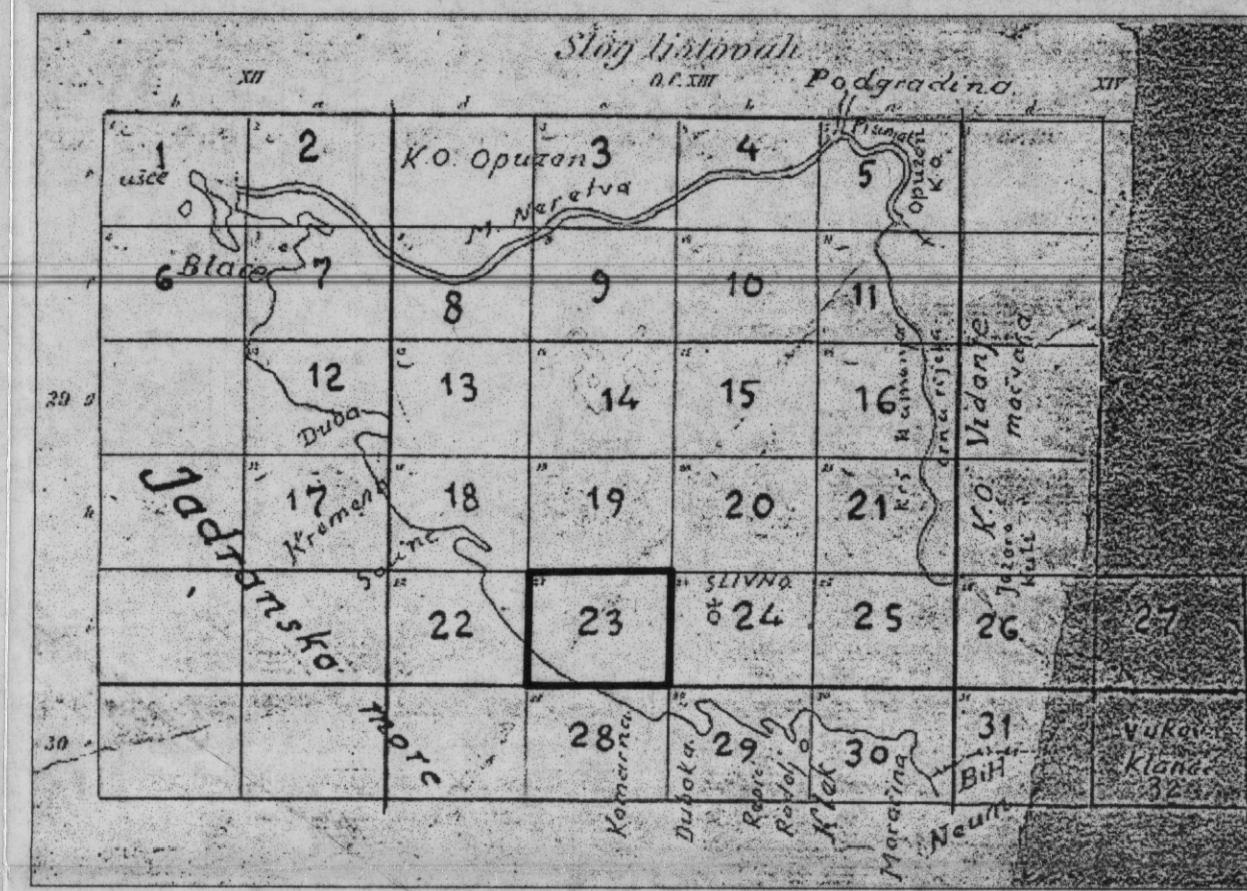 Slog listovah
XII
n.c. XIII
Podgradina
XIV
b
a
d
a
b
1
2
K.O. Opuzen
3
4
5
ušće
M. Neretva
Opuzen
K.O.
6
Blace
7
8
9
10
11
29
12
13
14
15
16
Duba
crna rijeka
K.O. Vidanje
mačvara
17
Kremena
18
19
20
21
krš
K.O.
Jezero
kuti
Jadransko
more
22
23
SLIVNO
24
25
26
27
30
28
29
30
31
BiH
Vukov
Klanac
32
Komarna
Duboka
Repić
Radalj
Klek
Maračina
Neum